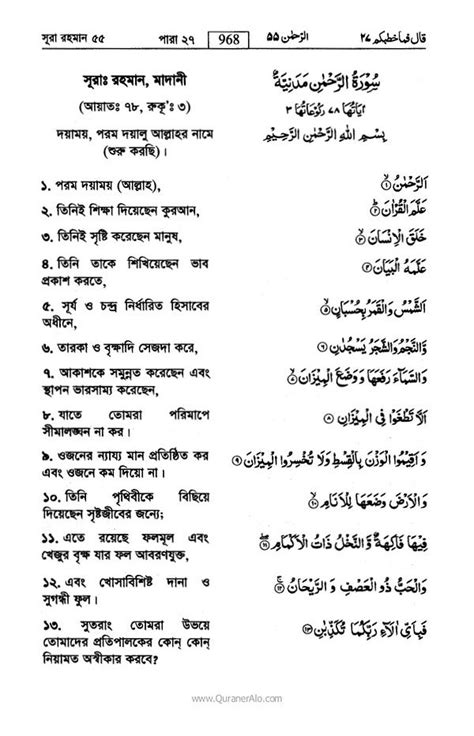 সূরা রহমান ৫৫ পারা ২৭ 968 الرحمٰن ٥٥ قال فماخطبكم ٢٧
সূরাঃ রহমান, মাদানী
(আয়াতঃ ৭৮, রুকূ'ঃ ৩)
দয়াময়, পরম দয়ালু আল্লাহর নামে
(শুরু করছি)।
১. পরম দয়াময় (আল্লাহ),
২. তিনিই শিক্ষা দিয়েছেন কুরআন,
৩. তিনিই সৃষ্টি করেছেন মানুষ,
৪. তিনি তাকে শিখিয়েছেন ভাব
প্রকাশ করতে,
৫. সূর্য ও চন্দ্র নির্ধারিত হিসাবের
অধীনে,
৬. তারকা ও বৃক্ষাদি সেজদা করে,
৭. আকাশকে সমুন্নত করেছেন এবং
স্থাপন ভারসাম্য করেছেন,
৮. যাতে তোমরা পরিমাপে
সীমালঙ্ঘন না কর।
৯. ওজনের ন্যায্য মান প্রতিষ্ঠিত কর
এবং ওজনে কম দিয়ো না।
১০. তিনি পৃথিবীকে বিছিয়ে
দিয়েছেন সৃষ্টজীবের জন্যে;
১১. এতে রয়েছে ফলমূল এবং
খেজুর বৃক্ষ যার ফল আবরণযুক্ত,
১২. এবং খোসাবিশিষ্ট দানা ও
সুগন্ধী ফুল।
১৩. সুতরাং তোমরা উভয়ে
তোমাদের প্রতিপালকের কোন্ কোন্
নিয়ামত অস্বীকার করবে?
سُوْرَةُ الرَّحْمٰنِ مَدَنِيَّةٌ
اٰيَاتُهَا ٧٨ رُكُوْعَاتُهَا ٣
بِسْمِ اللهِ الرَّحْمٰنِ الرَّحِيْمِ
اَلرَّحْمٰنُ ۙ ١
عَلَّمَ الْقُرْاٰنَ ؕ ٢
خَلَقَ الْاِنْسَانَ ۙ ٣
عَلَّمَهُ الْبَيَانَ ٤
اَلشَّمْسُ وَالْقَمَرُ بِحُسْبَانٍ ۙ ٥
وَّالنَّجْمُ وَالشَّجَرُ يَسْجُدٰنِ ٦
وَالسَّمَآءَ رَفَعَهَا وَ وَضَعَ الْمِيْزَانَ ۙ ٧
اَلَّا تَطْغَوْا فِي الْمِيْزَانِ ٨
وَ اَقِيْمُوا الْوَزْنَ بِالْقِسْطِ وَلَا تُخْسِرُوا الْمِيْزَانَ ٩
وَالْاَرْضَ وَضَعَهَا لِلْاَنَامِ ۙ ١٠
فِيْهَا فَاكِهَةٌ وَّ النَّخْلُ ذَاتُ الْاَكْمَامِ ۖ ١١
وَالْحَبُّ ذُو الْعَصْفِ وَ الرَّيْحَانُ ۚ ١٢
فَبِاَيِّ اٰلَآءِ رَبِّكُمَا تُكَذِّبٰنِ ١٣
www.QuranerAlo.com